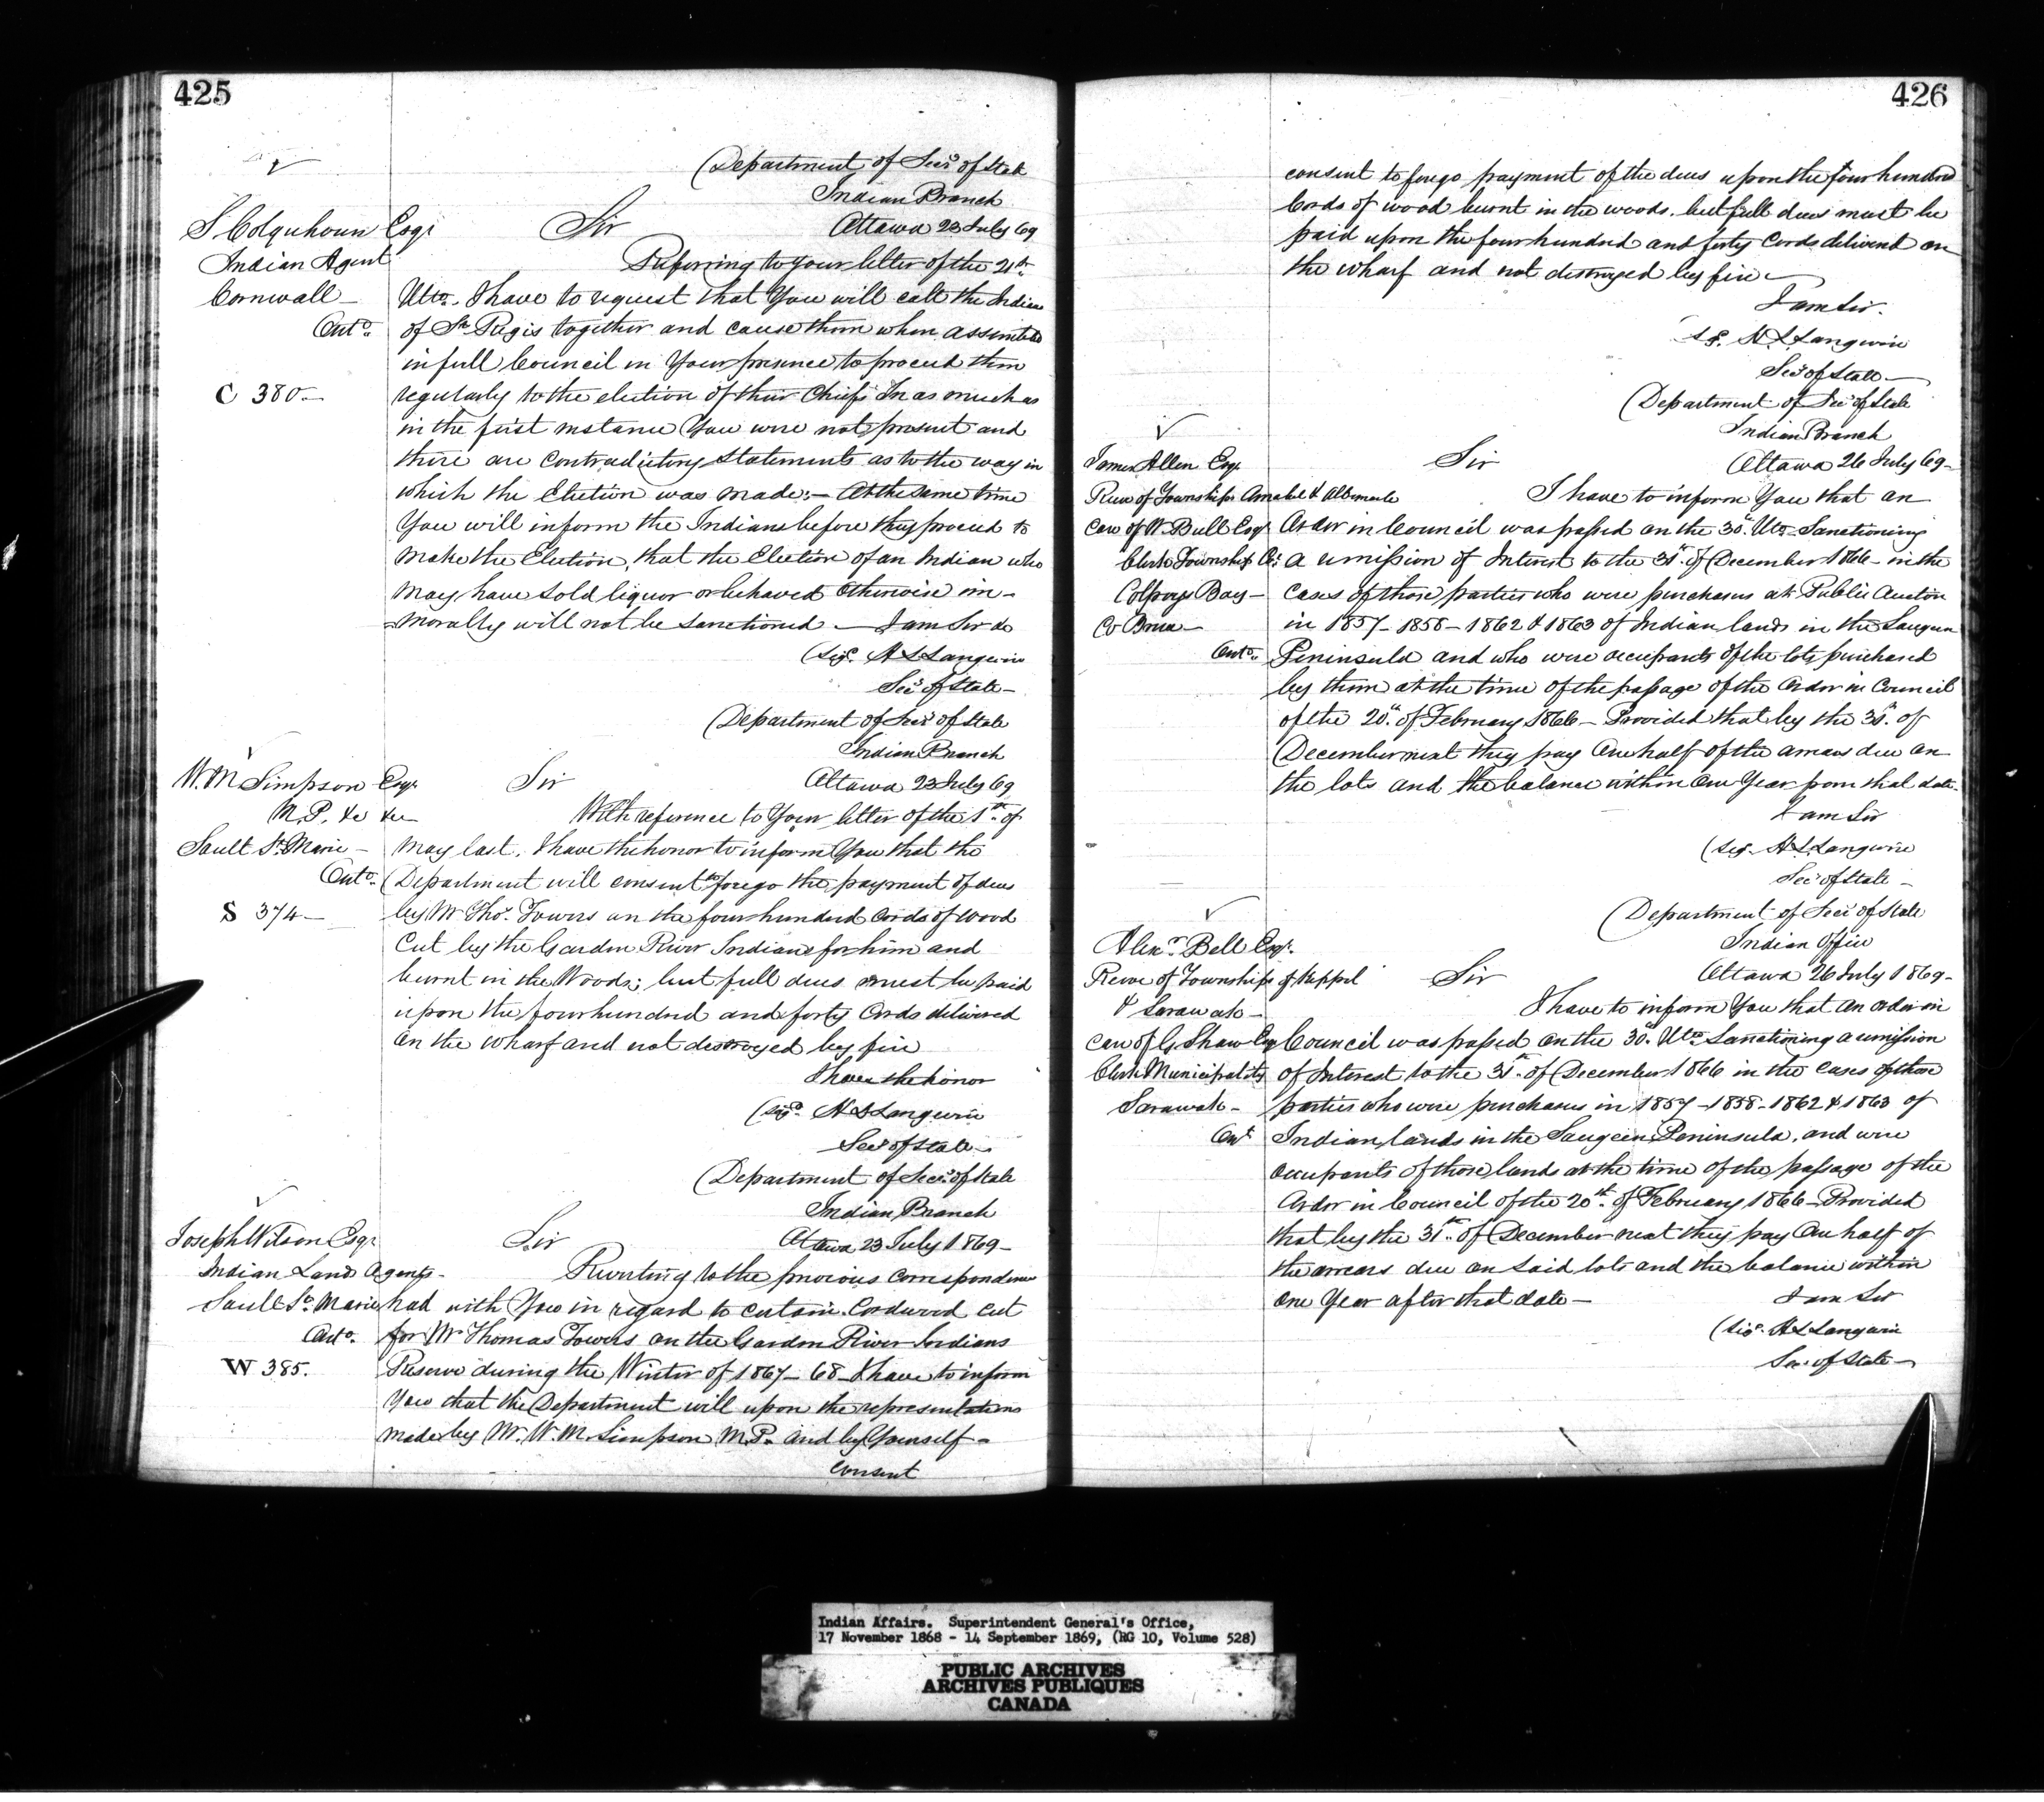 425
Department of Secy of State
Indian Branch
S Colquhoun Esqr
Sir
Ottawa 23 July 69
Indian Agent
Referring to your letter of the 21st
Cornwall
Ulto. I have to request that You will call the Indians
Onto.
of St. Regis together and cause them when assembled
in full Council in Your presence to proceed then
C 380
regularly to the election of their Chiefs In as much as
in the first instance You were not present and
there are contradictory statements as to the way in
which the Election was made:— At the same time
You will inform the Indians before they proceed to
make the Election, that the Election of an Indian who
may have sold liquor or behaved otherwise im-
-morally will not be sanctioned — I am Sir &c
(sigd. H L Langevin
Secy of State—
Department of Secy of State
Indian Branch
W. M Simpson Esqr
Sir
Ottawa 23 July 69
M.P. &c &c
With reference to Your letter of the 1st of
Sault St. Marie —
May last, I have the honor to inform You that the
Onto.
Department will consent to forego the payment of dues
S 374 —
by Mr Thos. Towers on the four hundred cords of wood
Cut by the Garden River Indians for him and
burnt in the Woods; but full dues must be paid
upon the four hundred and forty Cords delivered
On the wharf and not destroyed by fire
I have the honor
(sigd. H L Langevin
Secy of State—
Department of Secy of State
Indian Branch
Joseph Wilson Esqr
Sir
Ottawa 23 July 1869—
Indian Lands Agents—
Reverting to the previous correspondence
Sault St. Marie
had with You in regard to certain Cordwood cut
Onto.
for Mr Thomas Towers on the Garden River Indians
W 385.
Reserve during the Winter of 1867—68—I have to inform
You that the Department will upon the representations
made by Mr. W. M. Simpson M.P. and by Yourself—
Consent
426
consent to forego payment of the dues upon the four hundred
Cords of wood burnt in the woods, but full dues must be
paid upon the four hundred and forty Cords delivered on
the wharf and not destroyed by fire—
I am Sir.
sg. H. L. Langevin
Secy of State—
Department of Secy of State
Indian Branch
James Allen Esqr
Sir
Ottawa 26 July 69—
Reeve of Townships Amabel & Albemarle
I have to inform You that an
Care of W. Bull Esqr
Order in Council was passed on the 30th. Ulto Sanctioning
Clerk Township Co:
a remission of Interest to the 31st. of December 1866—in the
Colpoys Bay—
cases of those parties who were purchasers at Public Auction
Co Bruce—
in 1857—1858—1862 & 1863 of Indian lands in the Saugeen
Onto.
Peninsula and who were occupants of the lots purchased
by them at the time of the passage of the Order in Council
of the 20th. of February 1866—Provided that by the 31st. of
December next they pay One half of the arrears due on
the lots and the balance within One Year from that date.
I am Sir
(sig. H L Langevin
Secy of State—
Department of Secy of State
Indian Office
Alexr. Bell Esqr.
Reeve of Townships of Keppel
Sir
Ottawa 26 July 1869—
& Sarawak—
I have to inform You that An order in
Care of G. Shaw Esq
Council was passed on the 30th. Ulto Sanctioning a remission
Clerk Municipality
of Interest to the 31st. of December 1866 in the cases of those
Sarawak—
parties who were purchasers in 1857—1858—1862 & 1863 of
Ont
Indian lands in the Saugeen Peninsula, and were
Occupants of those lands at the time of the passage of the
Order in Council of the 20th. of February 1866—Provided
that by the 31st. of December next they pay One half of
the arrears due on said lots and the balance within
One Year after that date—
I am Sir
(sigd. H L Langevin
Sec. of State—
Indian Affairs. Superintendent General's Office,
17 November 1868 - 14 September 1869, (RG 10, Volume 528)
PUBLIC ARCHIVES
ARCHIVES PUBLIQUES
CANADA